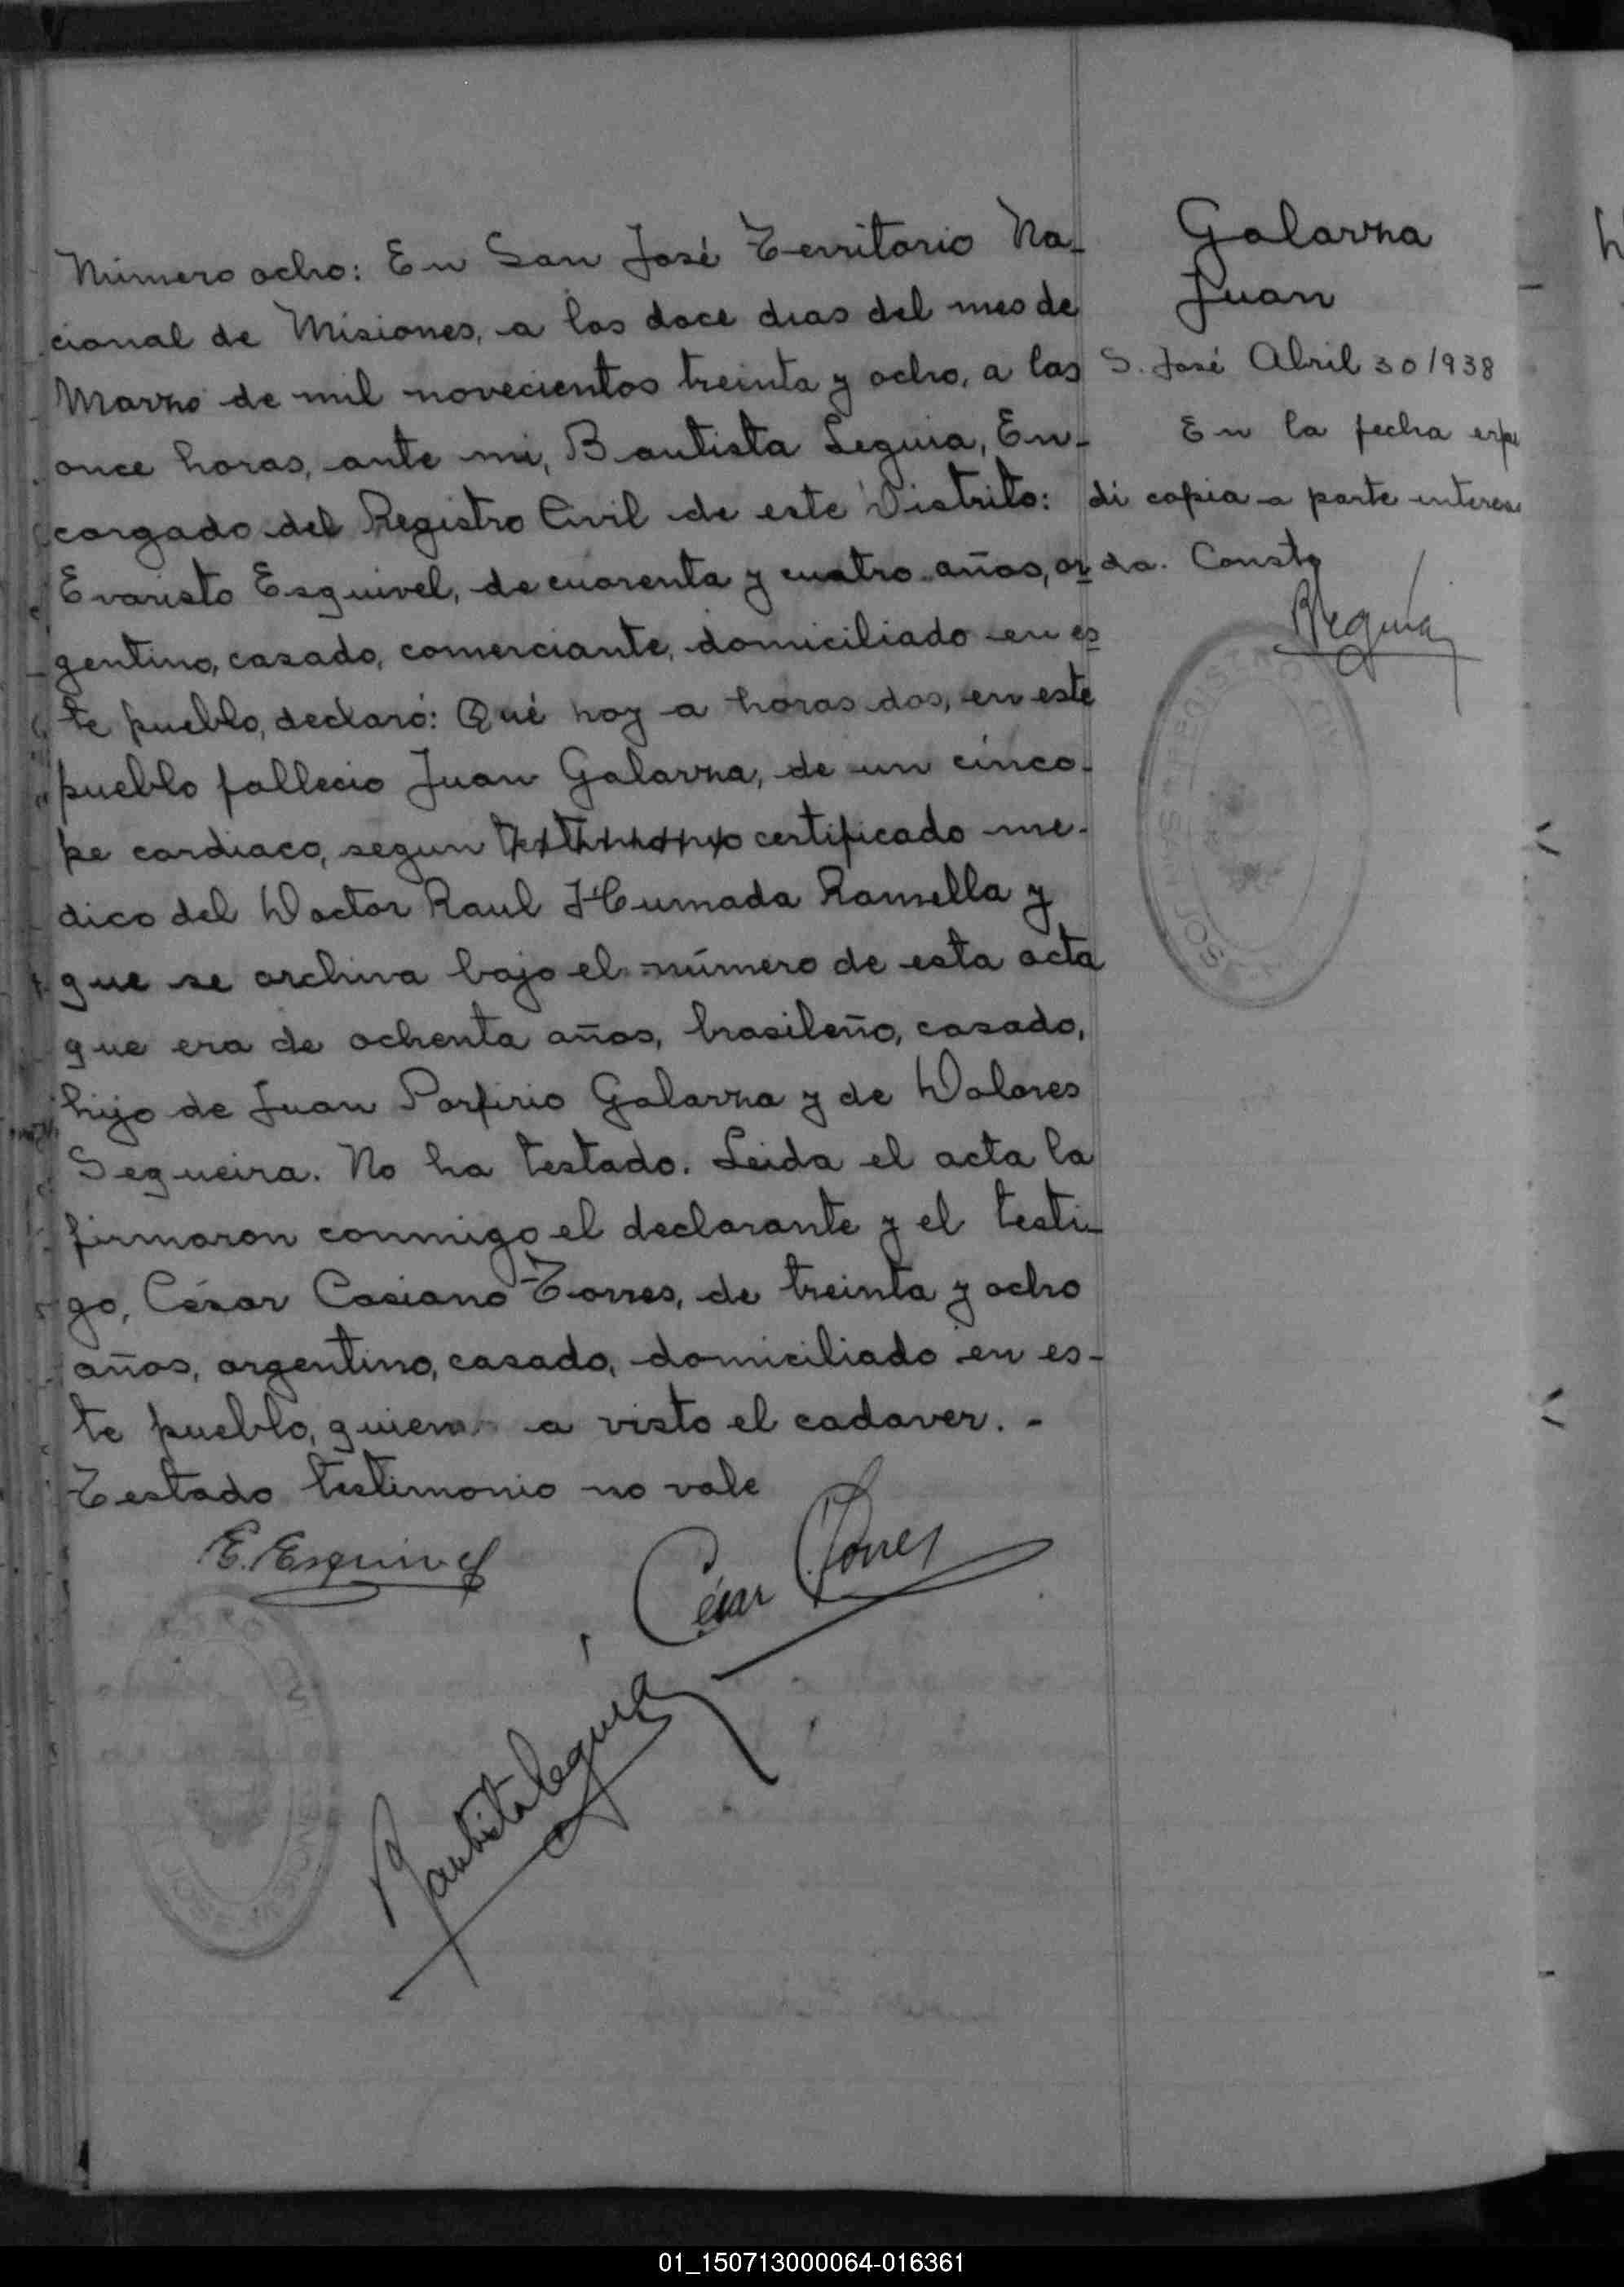 Número ocho: En San José Territorio Na-
cional de Misiones, a los doce dias del mes de
Marzo de mil novecientos treinta y ocho, a las
once horas, ante mi, Bautista Leguia, En-
cargado del Registro Civil de este Distrito:
Evaristo Esquivel, de cuarenta y cuatro años, ar
gentino, casado, comerciante, domiciliado en es
te pueblo, declaró: Qué hoy a horas dos, en este
pueblo fallecio Juan Galarza, de un cinco-
pe cardiaco, segun testimonio certificado me-
dico del Doctor Raul Humada Ramella y
que se archiva bajo el número de esta acta
que era de ochenta años, brasileño, casado,
hijo de Juan Porfirio Galarza y de Dolores
Segueira. No ha testado. Leida el acta la
firmaron conmigo el declarante y el testi-
go, César Casiano Torres, de treinta y ocho
años, argentino, casado, domiciliado en es-
te pueblo, quien a visto el cadaver. -
Testado testimonio no vale
E. Esquivel
César Torres
Bautista Leguia
Galarza
Juan
S. José Abril 30/938
En la fecha expe
di copia a parte interesa
da. Conste
BLeguia
01_150713000064-016361